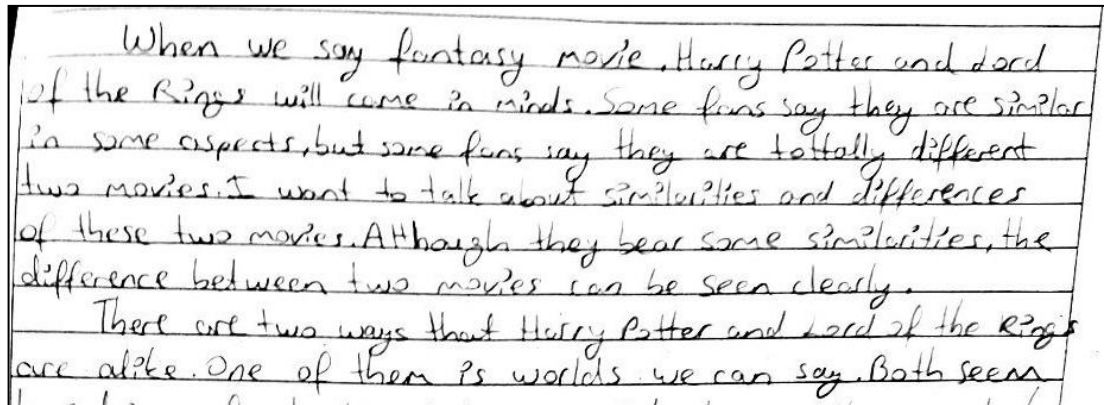 When we say fantasy movie, Harry Potter and Lord
of the Rings will come in minds. Some fans say they are similar
in some aspects, but some fans say they are tottally different
two movies. I want to talk about similarities and differences
of these two movies. Although they bear some similarities, the
difference between two movies can be seen clearly.
There are two ways that Harry Potter and Lord of the Rings
are alike. One of them is worlds we can say. Both seem